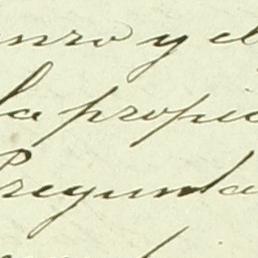 y el
la propie
Pregunta